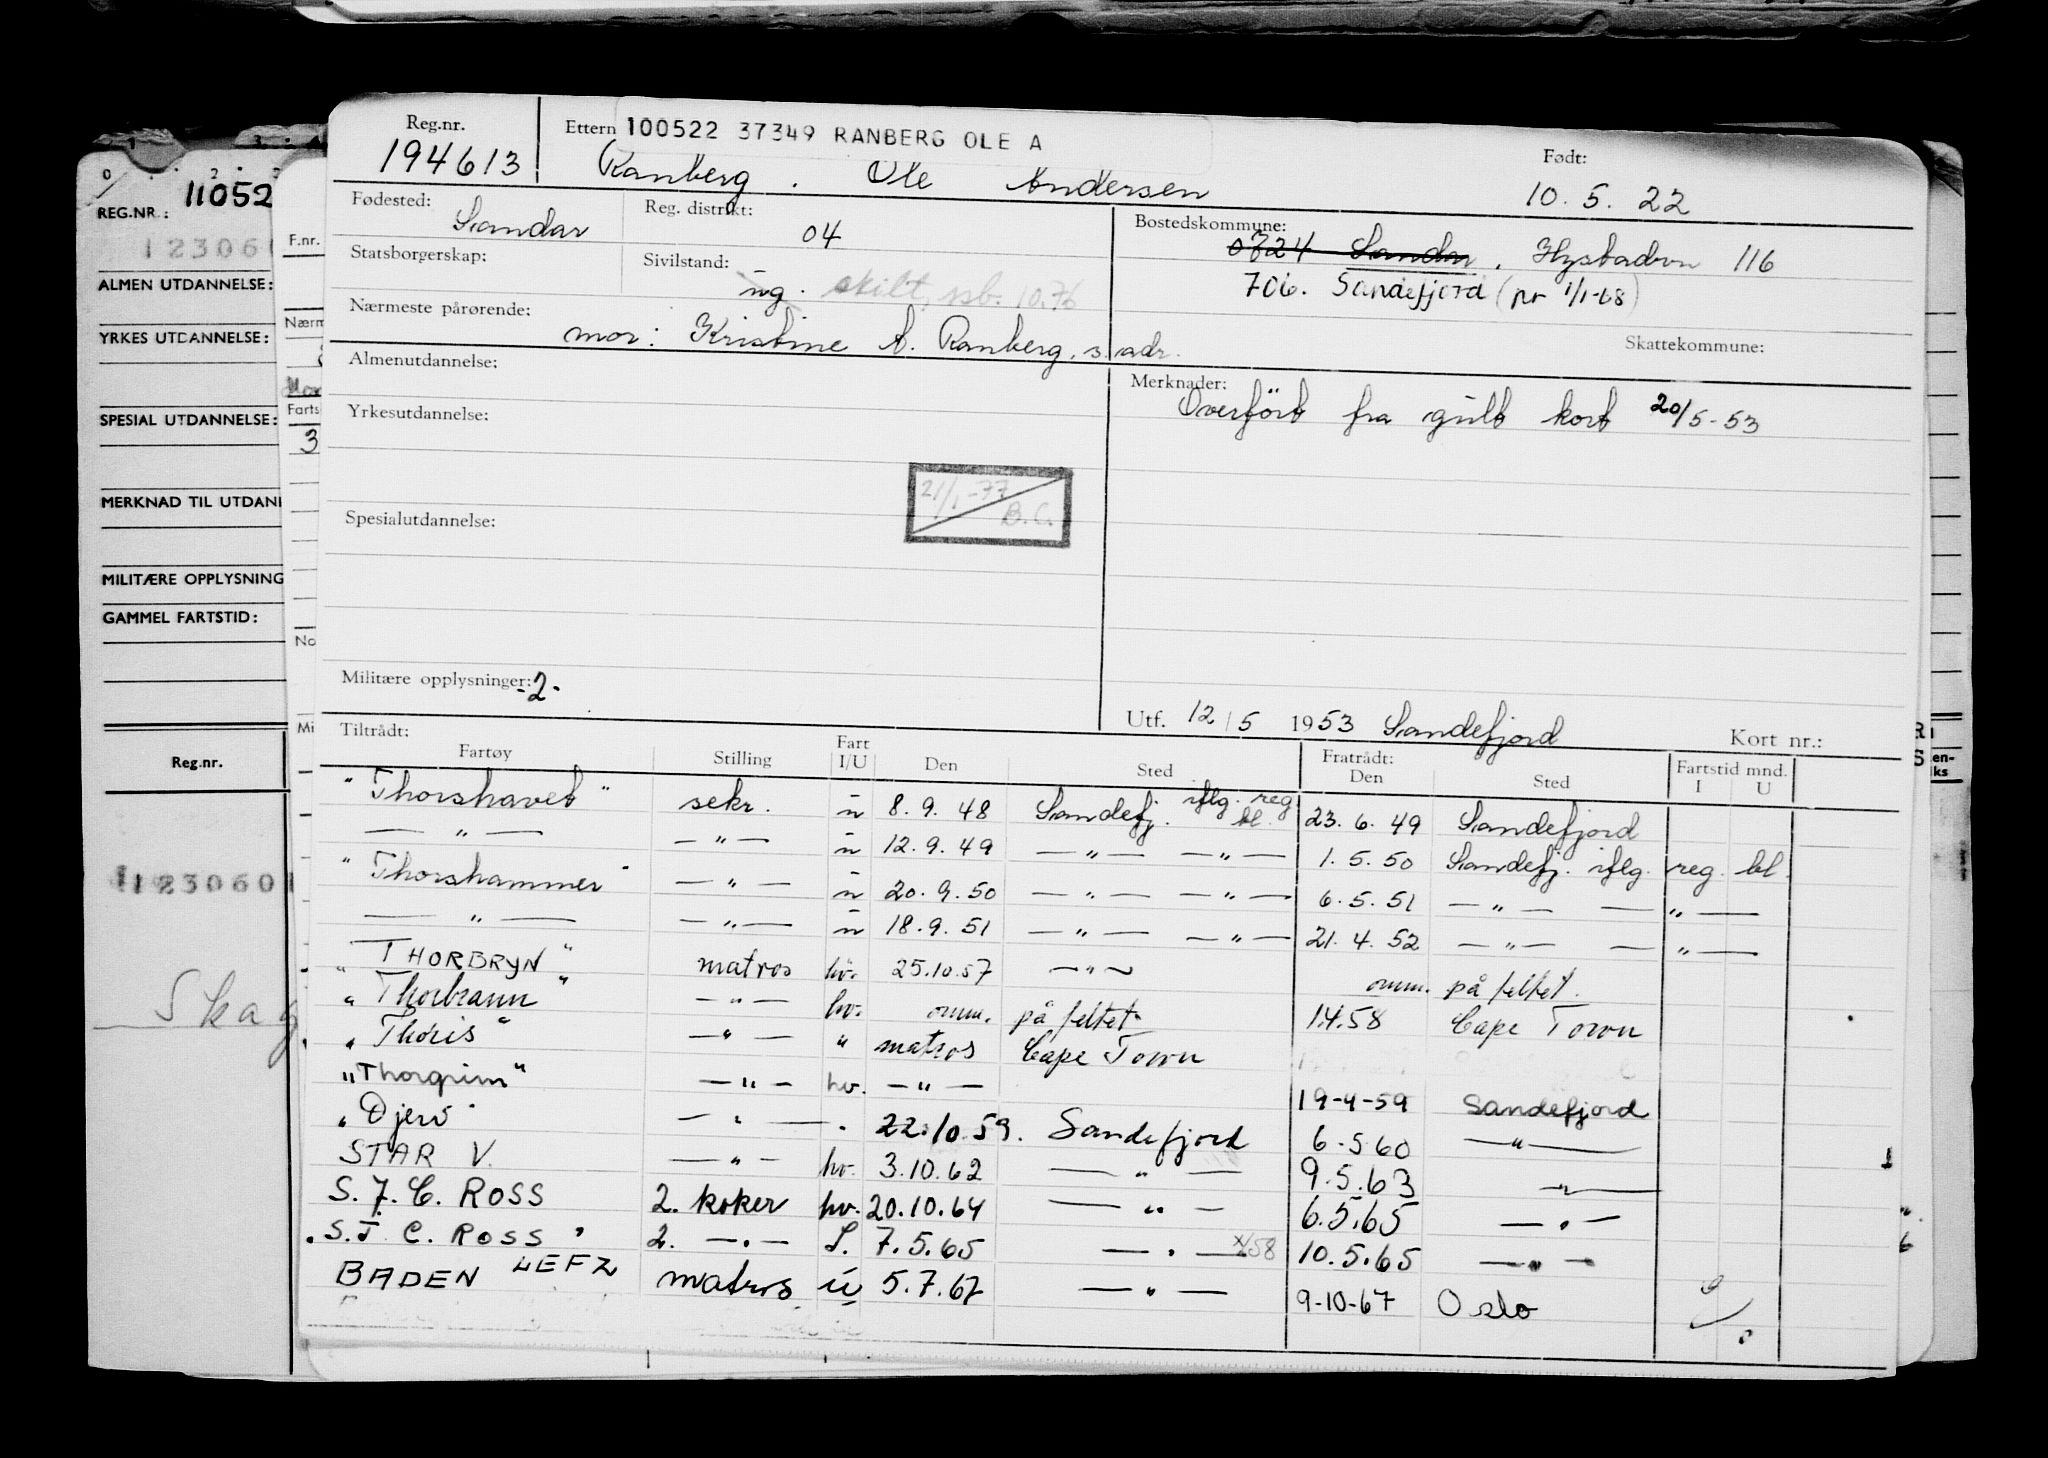 Reg.nr. Ettern 100522 37349 RANBERG OLE A Født:
194613 Ranberg, Ole Andersen 10.5.22
Fødested: Sandar Reg. distrikt: 04 Bostedskommune: 0724 Sandar, Hystadvn 116
Statsborgerskap: Sivilstand: ug. skilt, sb. 10.76 706. Sandefjord (pr 1/1-68)
Nærmeste pårørende: mor: Kristine A. Ranberg, s. adr. Skattekommune:
Almenutdannelse: Merknader: Overført fra gult kort 20/5-53
Yrkesutdannelse:
21/1-77 B.C.
Spesialutdannelse:
Militære opplysninger: -2-
Utf. 12/5 1953 Sandefjord Kort nr.:
Tiltrådt: Fratrådt: Fartstid mnd.
Fartøy Stilling Fart I/U Den Sted Den Sted I U
"Thorshavet" sekr. u 8.9.48 Sandefj. iflg. reg bl. 23.6.49 Sandefjord
— " — — " — u 12.9.49 — " — — " — 1.5.50 Sandefj. iflg. reg. bl.
"Thorshammer" — " — u 20.9.50 — " — — " — 6.5.51 — " — — " —
— " — — " — u 18.9.51 — " — — " — 21.4.52 — " — — " —
"THORBRYN" matros hv. 25.10.57 — " — omm. på feltet.
"Thorbrann" — " — hv. omm. på feltet 1.4.58 Cape Town
"Thoris" — " — " matros Cape Town
"Thorgrim" — " — hv. — " — 19-4-59 Sandefjord
"Djerv" — " — . 22.10.59. Sandefjord 6.5.60 — " —
STAR V. — " — hv. 3.10.62 — " — 9.5.63 — " —
S. J. C. ROSS 2. koker hv. 20.10.64 — " — 6.5.65 — " —
"S.J C. ROSS" 2. — " — S. 7.5.65 — " — x/58 10.5.65 — " —
BADEN LEFZ matros u 5.7.67 — " — 9-10-67 Oslo
REG.NR.: 11052
123060
ALMEN UTDANNELSE:
YRKES UTDANNELSE:
SPESIAL UTDANNELSE:
MERKNAD TIL UTDAN
MILITÆRE OPPLYSNING
GAMMEL FARTSTID:
Reg.nr.
1230601
Skag
F.nr.
Nærm
Farts
3
No
Mi